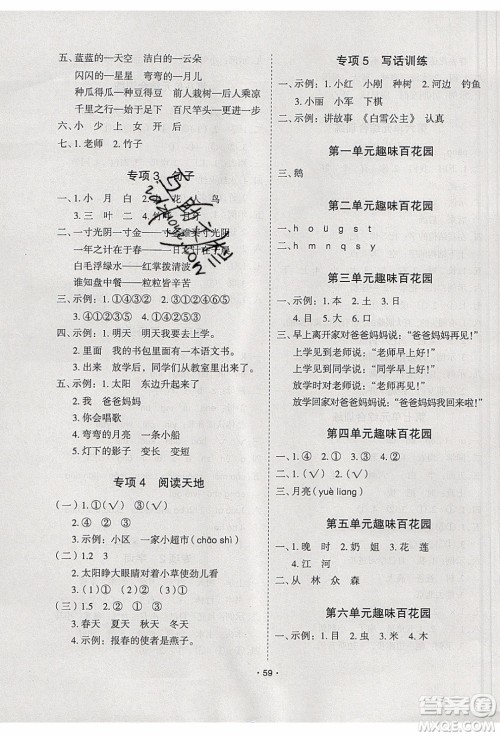 五、蓝蓝的—天空　洁白的—云朵
闪闪的—星星　弯弯的—月儿
种瓜得瓜—种豆得豆　前人栽树—后人乘凉
千里之行—始于足下　百尺竿头—更进一步
六、小　少　上　女　开　少
七、1.老师　2.竹子
专项 3　句子
一、1.小　月　白　花　人　鸟
3.三　叶　二　竹
二、一寸光阴一寸金——寸金难买寸光阴
一年之计在于春——一日之计在于晨
白毛浮绿水——红掌拨清波
谁知盘中餐——粒粒皆辛苦
三、示例：1.①④③②　2.①③②④
四、示例：1.明天　明天我要去上学。
2.里面　我的书包里面有一本语文书。
3.出来　放学后，同学们从教室里出来了。
五、示例：1.太阳　东边升起来
2.我　爸爸妈妈
3.你会唱歌
4.弯弯的月亮　一条小船
5.灯下的影子　变长　变短
专项 4　阅读天地
（一）1.①（√）　③（√）
2.②
3.示例：小区里　一家小超市(chāo shì)
（二）1.2　3
2.太阳睁大眼睛对着小草使劲儿看
3.（√）（√）（　）
（三）1.5　2.②　①　③
3.春天　夏天　秋天　冬天
4.示例：报春的使者是燕子。
专项 5　写话训练
一、示例：1.小红　小刚　种树　2.河边　钓鱼
3.小丽　小军　下棋
二、示例：讲故事　《白雪公主》　认真
第一单元趣味百花园
三、鹅
第二单元趣味百花园
一、h o u g s t
二、h m n q s y
第三单元趣味百花园
一、示例：1.本　2.土　3.日
4.目　5.口　6.大
三、早上离开家对爸爸妈妈说：“爸爸妈妈再见！”
上学见到老师说：“老师早上好！”
上学见到同学说：“早上好！”
放学时对老师说：“老师再见！”
放学回家对爸爸妈妈说：“爸爸妈妈我回来啦！”
第四单元趣味百花园
一、①④　②③
三、月亮(yuè liang)
第五单元趣味百花园
一、1.晚　时　2.奶　姐　3.花　莲
4.江　河
二、从　林　众　森
第六单元趣味百花园
一、示例：1.目　2.虫　3.米　4.木
·59·
作业精灵